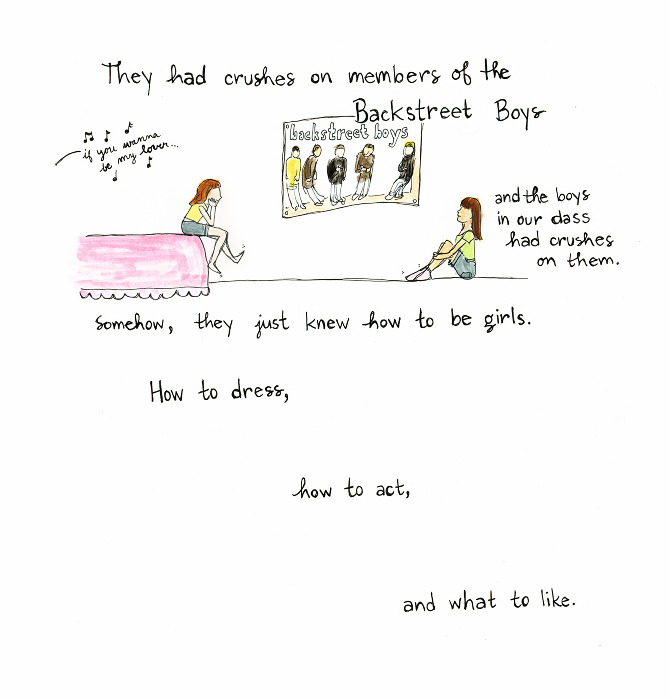 They had crushes on members of the
Backstreet Boys
backstreet boys
if you wanna
be my lover...
and the boys
in our class
had crushes
on them.
Somehow, they just knew how to be girls.
How to dress,
how to act,
and what to like.